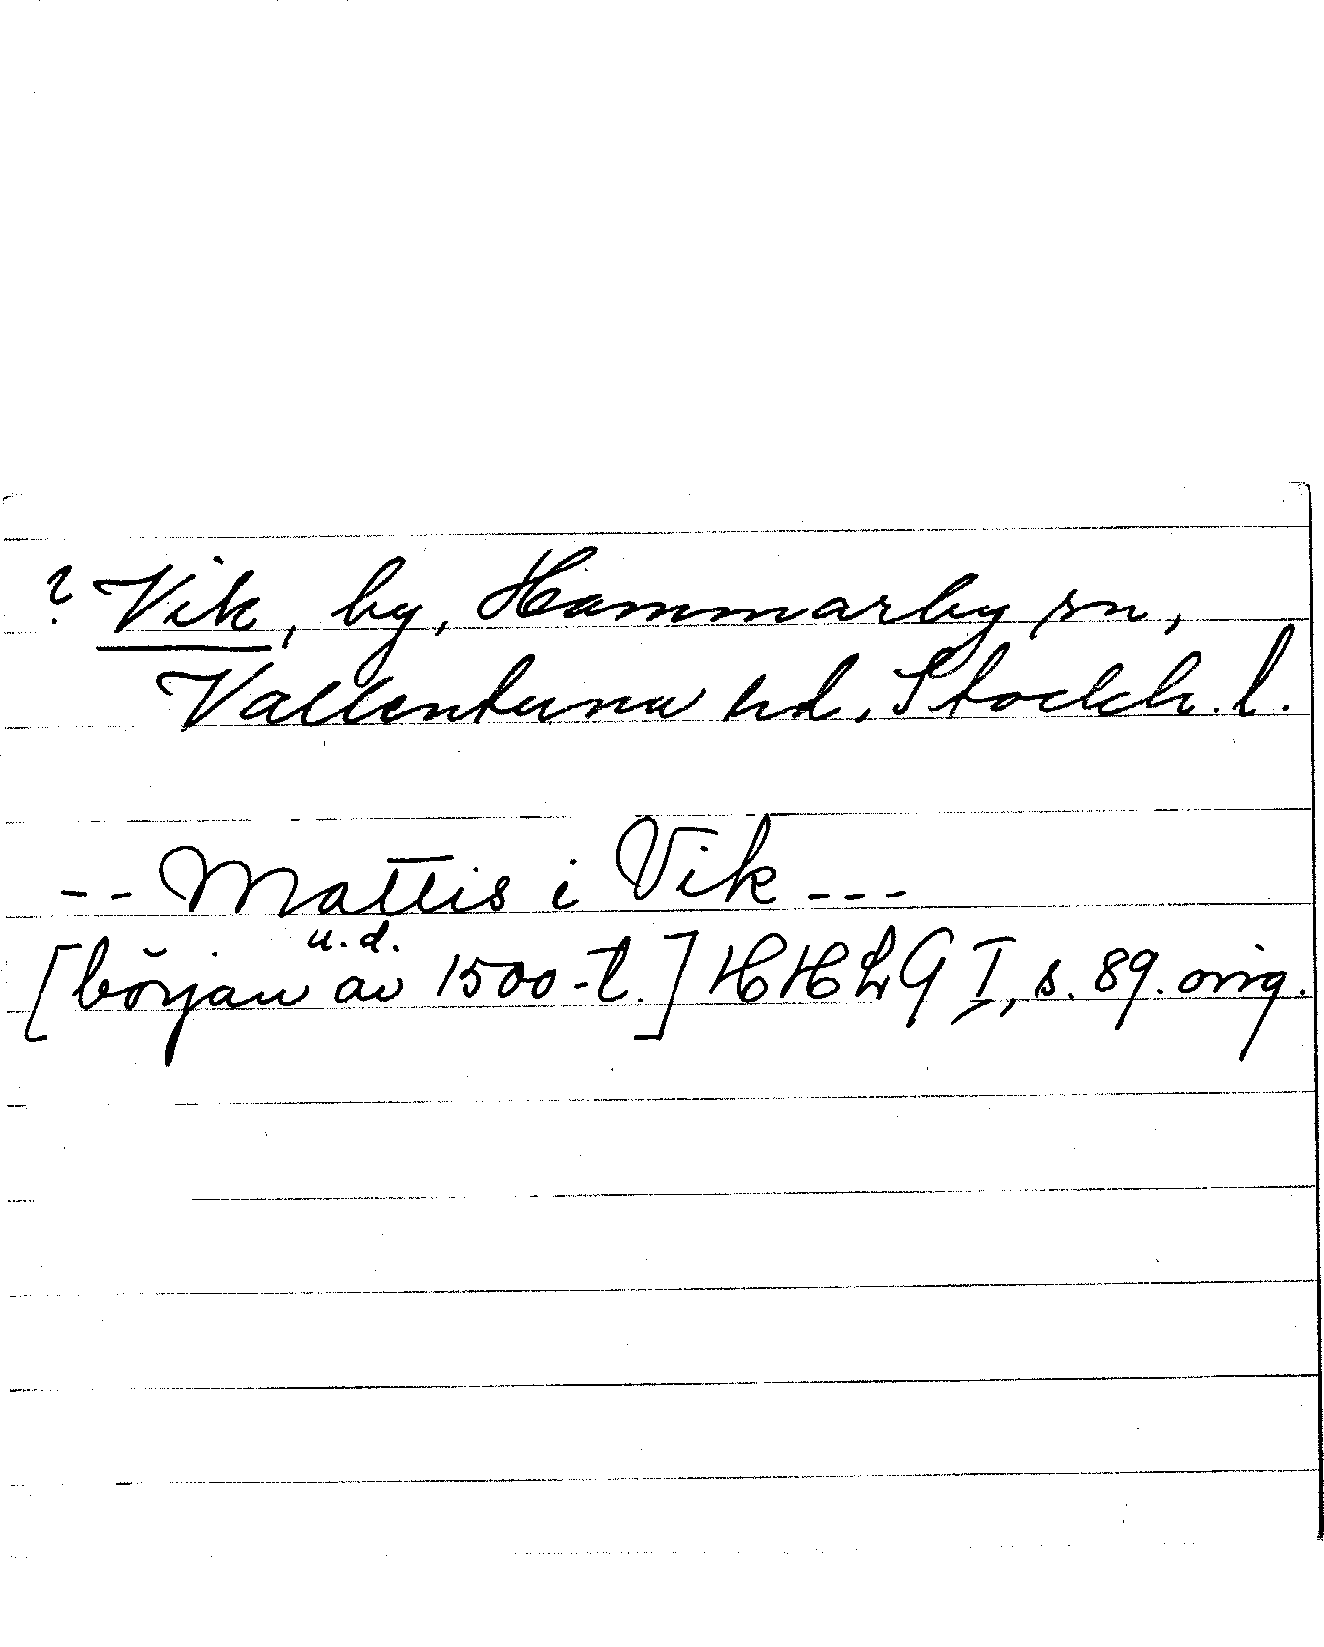 ? Vik, by, Hammarby sn,
Vallentuna hd, Stockh. l.
-- Mattis i Vik ---
u.d.
[början av 1500-t.] HHLG I, s. 89. orig.